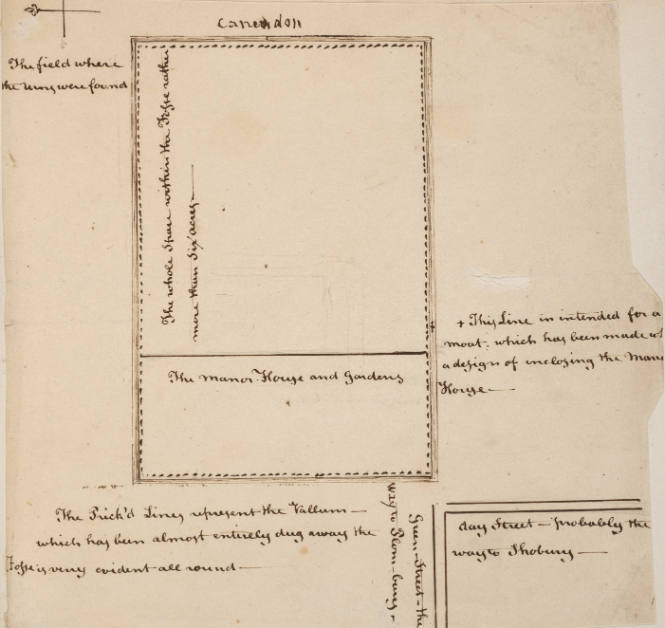 Canendon
The field where
the Urns were found
The whole Space within the Fosse rather
more than Six acres
+ This Line is intended for a
moat, which has been made wh
a design of inclosing the Mano
House
The Manor House and Gardens
The Prick'd Lines represent the Vallum
which has been almost entirely dug away the
Fosse is very evident all round
Green-Street-the
way to
day Street - probably the
way to Shobury